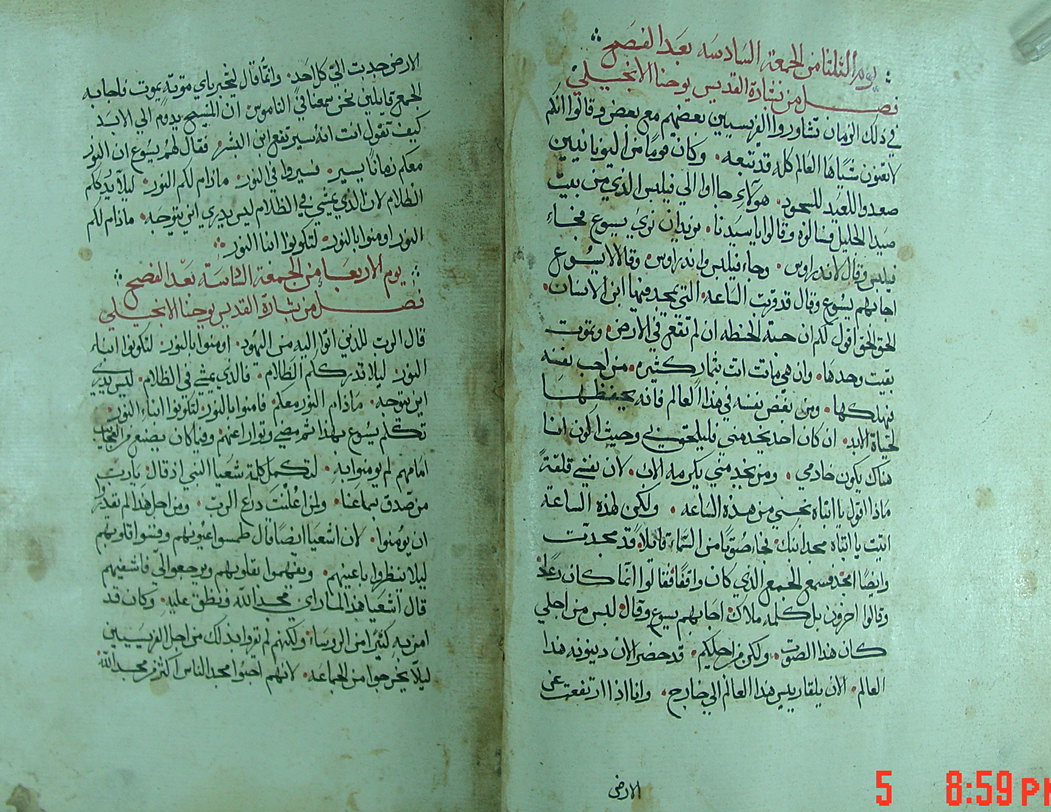 يوم الثلثا من الجمعة السادسه بعد الفصح
فصل من بشارة القديس يوحنا الانجيلي
في ذلك الزمان تشاوروا الفريسيين بعضهم مع بعض وقالوا انكم
لا تغنون شيًا ها العالم كله قد تبعه. وكان قومًا من اليونانيين
صعدوا للعيد للسجود. هولاي جااوا الي فيلبس الذي من بيت
صيدا الجليل فسالوه وقالوا يا سيدنا. نريد ان نري يسوع فجاء
فيلبس وقال لاندراوس. وجاء فيلبس واندراوس وقالا ليسوع
اجابهم يسوع وقال قد قربت الساعة التي يمجد فيها ابن الانسان.
الحق الحق اقول لكم ان حبة الحنطه ان لم تقع في الارض وتموت
بقيت وحدها. وان هي ماتت اتت بثمار كثيره. من احب نفسه
فيهلكها. ومن يغض نفسه في هذا العالم فانه يحفظها
لحياة الابد. ان كان احد يخدمني فليلحق بي وحيث اكون انا
هناك يكون خادمي. ومن يخدمني يكرمه الاب. لان نفسي قلقة
ماذا اقول يا ابتاه نجيني من هذه الساعه. ولكن لهذه الساعة
اتيت يا ابتاه مجد ابنك فجاء صوتًا من السماء قايلا قد مجدت
وايضًا امجد فسمع الجمع الذي كان واقفًا فقالوا انما كان رعدًا
وقالوا اخرون بل كلمه ملاك اجابهم يسوع وقال ليس من اجلي
كان هذا الصوت. ولكن من اجلكم. قد حضر الان دينونه هذا
العالم. الان يلقا رييس هذا العالم الي خارج. وانا اذا ارتفعت عن
الارض
الارض جدبت اليّ كل احد. وانما قال ليخبر باي موتةٍ يموت فاجابه
الجمع قايلين نحن سمعنا في الناموس ان المسيح يدوم الي الابد
كيف تقول انت انه سيرتفع ابن البشر فقال لهم يسوع ان النور
معكم زمانًا يسير. فسيروا في النور. مادام لكم النور. ليلا يدرككم
الظلام لان الذي يمشي في الظلام ليس يدري اين يتوجه. مادام لكم
النور اومنوا بالنور. لتكونوا ابنا النور
يوم الاربعا من الجمعة السادسة بعد الفصح
فصل من بشارة القديس يوحنا الانجيلي
قال الرب للذين اتوا اليه من اليهود. اومنوا بالنور. لتكونوا ابناء
النور. ليلا يدرككم الظلام. فالذي يمشي في الظلام. ليس يدري
اين يتوجه. مادام النور معكم. فامنوا بالنور. لتكونوا ابناء النور.
تكلم يسوع بهذا ثم مضي وتوارا عنهم وفيما كان يصنع
امامهم لم يومنوا به. لتكمل كلمة شعيا النبي اذ قال. يا رب
من صدق سماعنا. ولمن اعلنت دراع الرب. ومن اجل هذا لم يقدروا
ان يومنوا. لان اشعيا ايضًا قال طمسوا عيونهم وقسوا قلوبهم
ليلا ينظروا باعينهم. ويفهموا بقلوبهم ويرجعوا اليّ فاشفيهم
قال اشعيا هذا لما راي مجد الله ونطق عليه. وكان قد
امن به كثيرًا من الروساء ولكنهم لم يقروا بذلك من اجل الفريسيين
ليلا يخرجوا من الجماعه. لانهم احبوا مجد الناس اكثر من مجد الله
5 8:59 PM